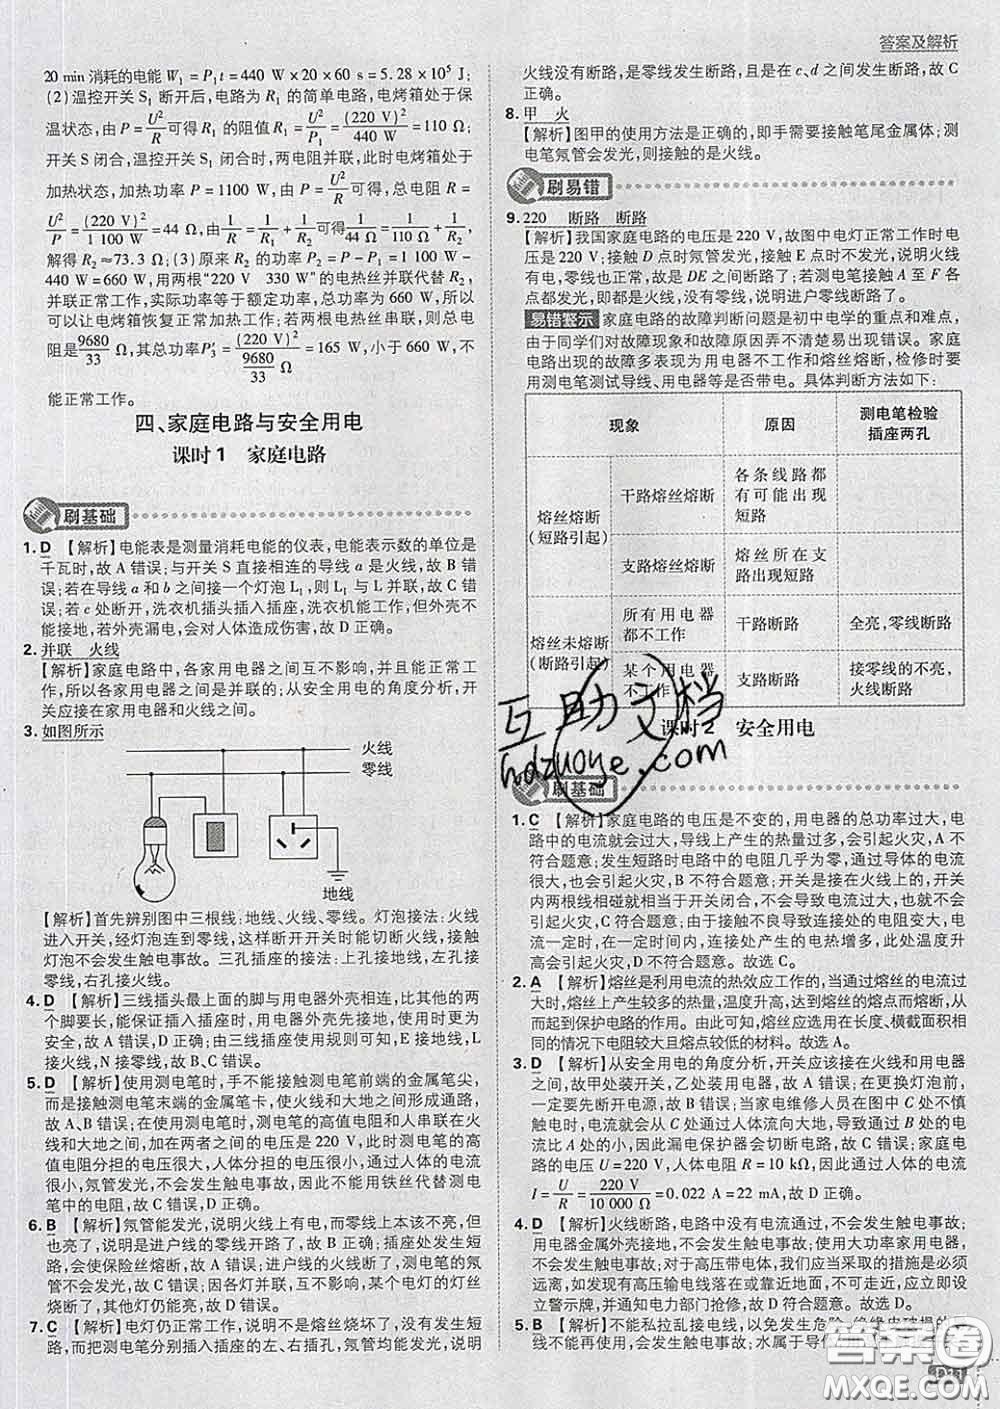 答案及解析
20 min 消耗的电能 W₁ = P₁t = 440 W × 20 × 60 s = 5.28 × 10⁵ J;
(2)温控开关 S₁ 断开后,电路为 R₁ 的简单电路,电烤箱处于保
温状态,由 P = U²/R 可得 R₁ 的阻值 R₁ = U²/P₁ = (220 V)²/440 W = 110 Ω;
开关 S 闭合,温控开关 S₁ 闭合时,两电阻并联,此时电烤箱处于
加热状态,加热功率 P = 1100 W,由 P = U²/R 可得,总电阻 R =
U²/P = (220 V)²/1 100 W = 44 Ω,由 1/R = 1/R₁ + 1/R₂ 得,1/44 Ω = 1/110 Ω + 1/R₂,
解得 R₂ ≈ 73.3 Ω;(3)原来 R₂ 的功率 P₂ = P − P₁ = 1 100 W −
440 W = 660 W,用两根“220 V 330 W”的电热丝并联代替 R₂,
并联正常工作,实际功率等于额定功率,总功率为 660 W,所以
可以让电烤箱恢复正常加热工作;若两根电热丝串联,则总电
阻是 9680/33 Ω,其总功率 P₃′ = (220 V)²/(9680/33 Ω) = 165 W,小于 660 W,不
能正常工作。
四、家庭电路与安全用电
课时1 家庭电路
刷基础
1. D 【解析】电能表是测量消耗电能的仪表,电能表示数的单位是
千瓦时,故 A 错误;与开关 S 直接相连的导线 a 是火线,故 B 错
误;若在导线 a 和 b 之间接一个灯泡 L₁,则 L₁ 与 L 并联,故 C 错
误;若 c 处断开,洗衣机插头插入插座,洗衣机能工作,但外壳不
能接地,若外壳漏电,会对人体造成伤害,故 D 正确。
2. 并联 火线
【解析】家庭电路中,各家用电器之间互不影响,并且能正常工
作,所以各家用电器之间是并联的;从安全用电的角度分析,开
关应接在家用电器和火线之间。
3. 如图所示
火线
零线
地线
【解析】首先辨别图中三根线:地线、火线、零线。灯泡接法:火线
进入开关,经灯泡连到零线,这样断开开关时能切断火线,接触
灯泡不会发生触电事故。三孔插座的接法:上孔接地线,左孔接
零线,右孔接火线。
4. D 【解析】三线插头最上面的脚与用电器外壳相连,比其他的两
个脚要长,能保证插入插座时,用电器外壳先接地,使用时更
安全,故 A 错误,D 正确;由三线插座使用规则可知,E 接地线,L
接火线,N 接零线,故 B、C 错误。
5. D 【解析】使用测电笔时,手不能接触测电笔前端的金属笔尖,
而是接触测电笔末端的金属笔卡,使火线和大地之间形成通路,
故 A、B 错误;在使用测电笔时,测电笔的高值电阻和人串联在火
线和大地之间,加在两者之间的电压是 220 V,测电笔的高
值电阻分担的电压很大,人体分担的电压很小,通过人体的电流
很小,氖管发光,不会对人体造成伤害,因此不能用铁丝代替测电
笔中的电阻,故 C 错误,D 正确。
6. B 【解析】氖管能发光,说明火线上有电,而零线上本该不亮,但
也亮了,说明是进户线的零线开路了,故 B 正确;若电路发生短
路,会使保险丝熔断,故 A 错误;进户线的火线开路,测电笔的氖
管不会发光,故 C 错误;因各灯并联,互不影响,某个电灯的灯丝
烧断了,其他灯仍能亮,故 D 错误。
7. C 【解析】电灯仍正常工作,说明不是熔丝烧坏了,没有发生短
路,而把测电笔分别插入插座的左、右插孔,氖管均能发光,说明
火线没有断路,是零线发生断路,且是在 c、d 之间发生断路,故 C
正确。
8. 甲 火
【解析】图甲的使用方法是正确的,即手需要接触笔尾金属体;测
电笔氖管会发光,则接触的是火线。
刷易错
9. 220 断路 断路
【解析】我国家庭电路的电压是 220 V,故图中电灯正常工作时电
压是 220 V;接触 D 点时氖管发光,接触 E 点时不发光,说明火线
有电,零线也正常,故是 DE 之间断路了;若测电笔接触 A 至 F 各
点都发光,即都是火线,没有零线,说明进户零线断路了。
易错警示 家庭电路的故障判断问题是初中电学的重点和难点,
由于同学们对故障现象和故障原因弄不清楚易出现错误。家庭
电路出现的故障多表现为用电器不工作和熔丝熔断,检修时要
用测电笔测试导线、用电器等是否带电。具体判断方法如下:
现象 原因 测电笔检验插座两孔
熔丝熔断(短路引起) 干路熔丝熔断 各条线路都有可能出现短路
支路熔丝熔断 熔丝所在支路出现短路
熔丝未熔断(断路引起) 所有用电器都不工作 干路断路 全亮,零线断路
某个用电器不工作 支路断路 接零线的不亮,火线断路
课时2 安全用电
刷基础
1. C 【解析】家庭电路的电压是不变的,用电器的总功率过大,电
路中的电流就会过大,导线上产生的热量过多,会引起火灾,A 不
符合题意;发生短路时电路中的电阻几乎为零,通过导体的电流
很大,也会引起火灾,B 不符合题意;开关是接在火线上的,开关
内两根线相碰就相当于开关闭合,不会引起火灾,通过的电流没
有变大,C 符合题意;由于接触不良导致连接处的电阻变大,
电流一定时,在相同时间内,连接处产生的电热增多,此处温度升
高会引起火灾,D 不符合题意。故选 C。
2. A 【解析】熔丝是利用电流的热效应工作的,当通过熔丝的电流过
大时,熔丝上产生较多的热量,温度升高,达到熔丝的熔点而熔断,
从而起到保护电路的作用。由此可知,熔丝应选用在长度、横截面积
相同的情况下电阻较大且熔点较低的材料。故选 A。
3. D 【解析】从安全用电的角度分析,开关应该接在火线和用电器
之间,故甲处装开关,乙处装用电器,故 A 错误;在更换灯泡前,
一定要先断开电源,故 B 错误;当家电维修人员在图中 C 处不慎
触电时,电流从 C 处通过人体流向大地,导致通过 B 处的电
流比 A 处的小,因此漏电保护器会切断电路,故 C 错误;家庭电
路的电压 U = 220 V,人体电阻 R = 10 kΩ,通过人体的电流
I = U/R = 220 V/10 000 Ω = 0.022 A = 22 mA,故 D 正确。
4. D 【解析】火线断路,电路中没有电流通过,不会发生触电事故;
用电器金属外壳接地,不会发生触电事故;使用大功率家用电器,
不会发生触电事故;对于高压带电体,我们应当采取的措施是必须
远离,如发现有高压输电线落在或靠近地面,不可走近,应立即
设立警示牌,并通知电力部门抢修,故 D 符合题意。故选 D。
5. B 【解析】不能私拉乱接电线,以免发生危险,绝缘皮破损的
线不能再使用,会发生触电事故;水属于导体
D11
互助文档
hdzuoye.com
答案圈
MXQE.COM